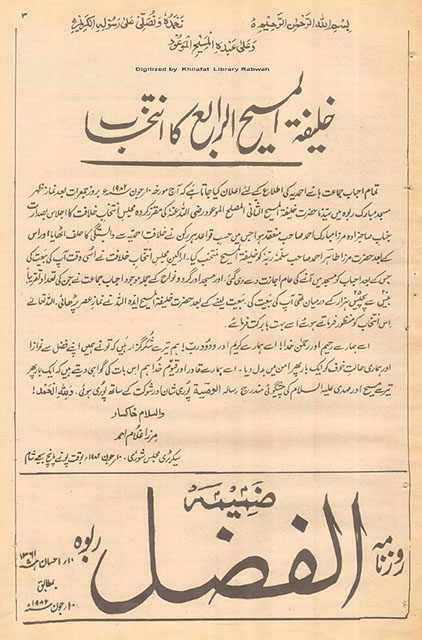 ۳
بِسْمِ اللهِ الرَّحْمٰنِ الرَّحِيْمِ نَحْمَدُهٗ وَنُصَلِّیْ عَلٰی رَسُوْلِهِ الْكَرِيْمِ
وَعَلٰی عَبْدِهِ الْمَسِيْحِ الْمَوْعُوْدِ
Digitized by Khilafat Library Rabwah
خلیفۃ المسیح الرابع کا انتخاب
تمام احباب جماعت ہائے احمدیہ کی اطلاع کے لئے اعلان کیا جاتا ہے کہ آج مورخہ ۱۰؍جون ۱۹۸۲ء بروز جمعرات بعد نماز ظہر
مسجد مبارک ربوہ میں سیدنا حضرت خلیفۃ المسیح الثانی المصلح الموعود رضی اللہ عنہ کی مقرر کردہ مجلس انتخاب خلافت کا اجلاس بصدارت
جناب صاحبزادہ مرزا مبارک احمد صاحب منعقد ہوا جس میں حسب قواعد ہر رکن نے خلافت احمدیہ سے وابستگی کا حلف اٹھایا اور اس
کے بعد حضرت مرزا طاہر احمد صاحب سلمہ ربہٗ کو خلیفۃ المسیح منتخب کیا۔ اراکین مجلس انتخاب خلافت نے اسی وقت آپ کی بیعت کی
جس کے بعد احباب کو مسجد میں آنے کی عام اجازت دے دی گئی۔ اور مسجد اور گرد و نواح کے جملہ موجود احباب جماعت نے جن کی تعداد تقریباً
پچیس ہزار کے درمیان تھی آپ کی بیعت کی۔ بیعت لینے کے بعد حضرت خلیفۃ المسیح ایدہ اللہ نے نماز عصر پڑھائی۔ اللہ تعالیٰ
اس انتخاب کو منظور فرماتے ہوئے اسے بہت بابرکت فرمائے
اے ہمارے رحیم اور رحمٰن خدا! اے ہمارے کریم اور ودود رب! ہم تیرے شکر گزار ہیں کہ تو نے ہمیں اپنے فضل سے نوازا
اور ہماری حالت خوف کو ایک بار پھر امن میں بدل دیا۔ اے ہمارے قادر اور قیوم خدا ہم اس بات کی گواہی دیتے ہیں کہ ایک بار پھر
تیرے مسیح اور مہدی علیہ السلام کی پیشگوئی مندرج رسالہ الوصیۃ پوری شان اور شوکت کے ساتھ پوری ہوئی۔ وللہ الحمد!
والسلام خاکسار
مرزا غلام احمد
سیکرٹری مجلس شوریٰ۔ ۱۰؍جون ۱۹۸۲ء بوقت پونے پانچ بجے شام
ضمیمہ
روزنامہ الفضل ربوہ
۱۰؍احسان ۱۳۶۱ھش
بمطابق
۱۰؍جون ۱۹۸۲ء